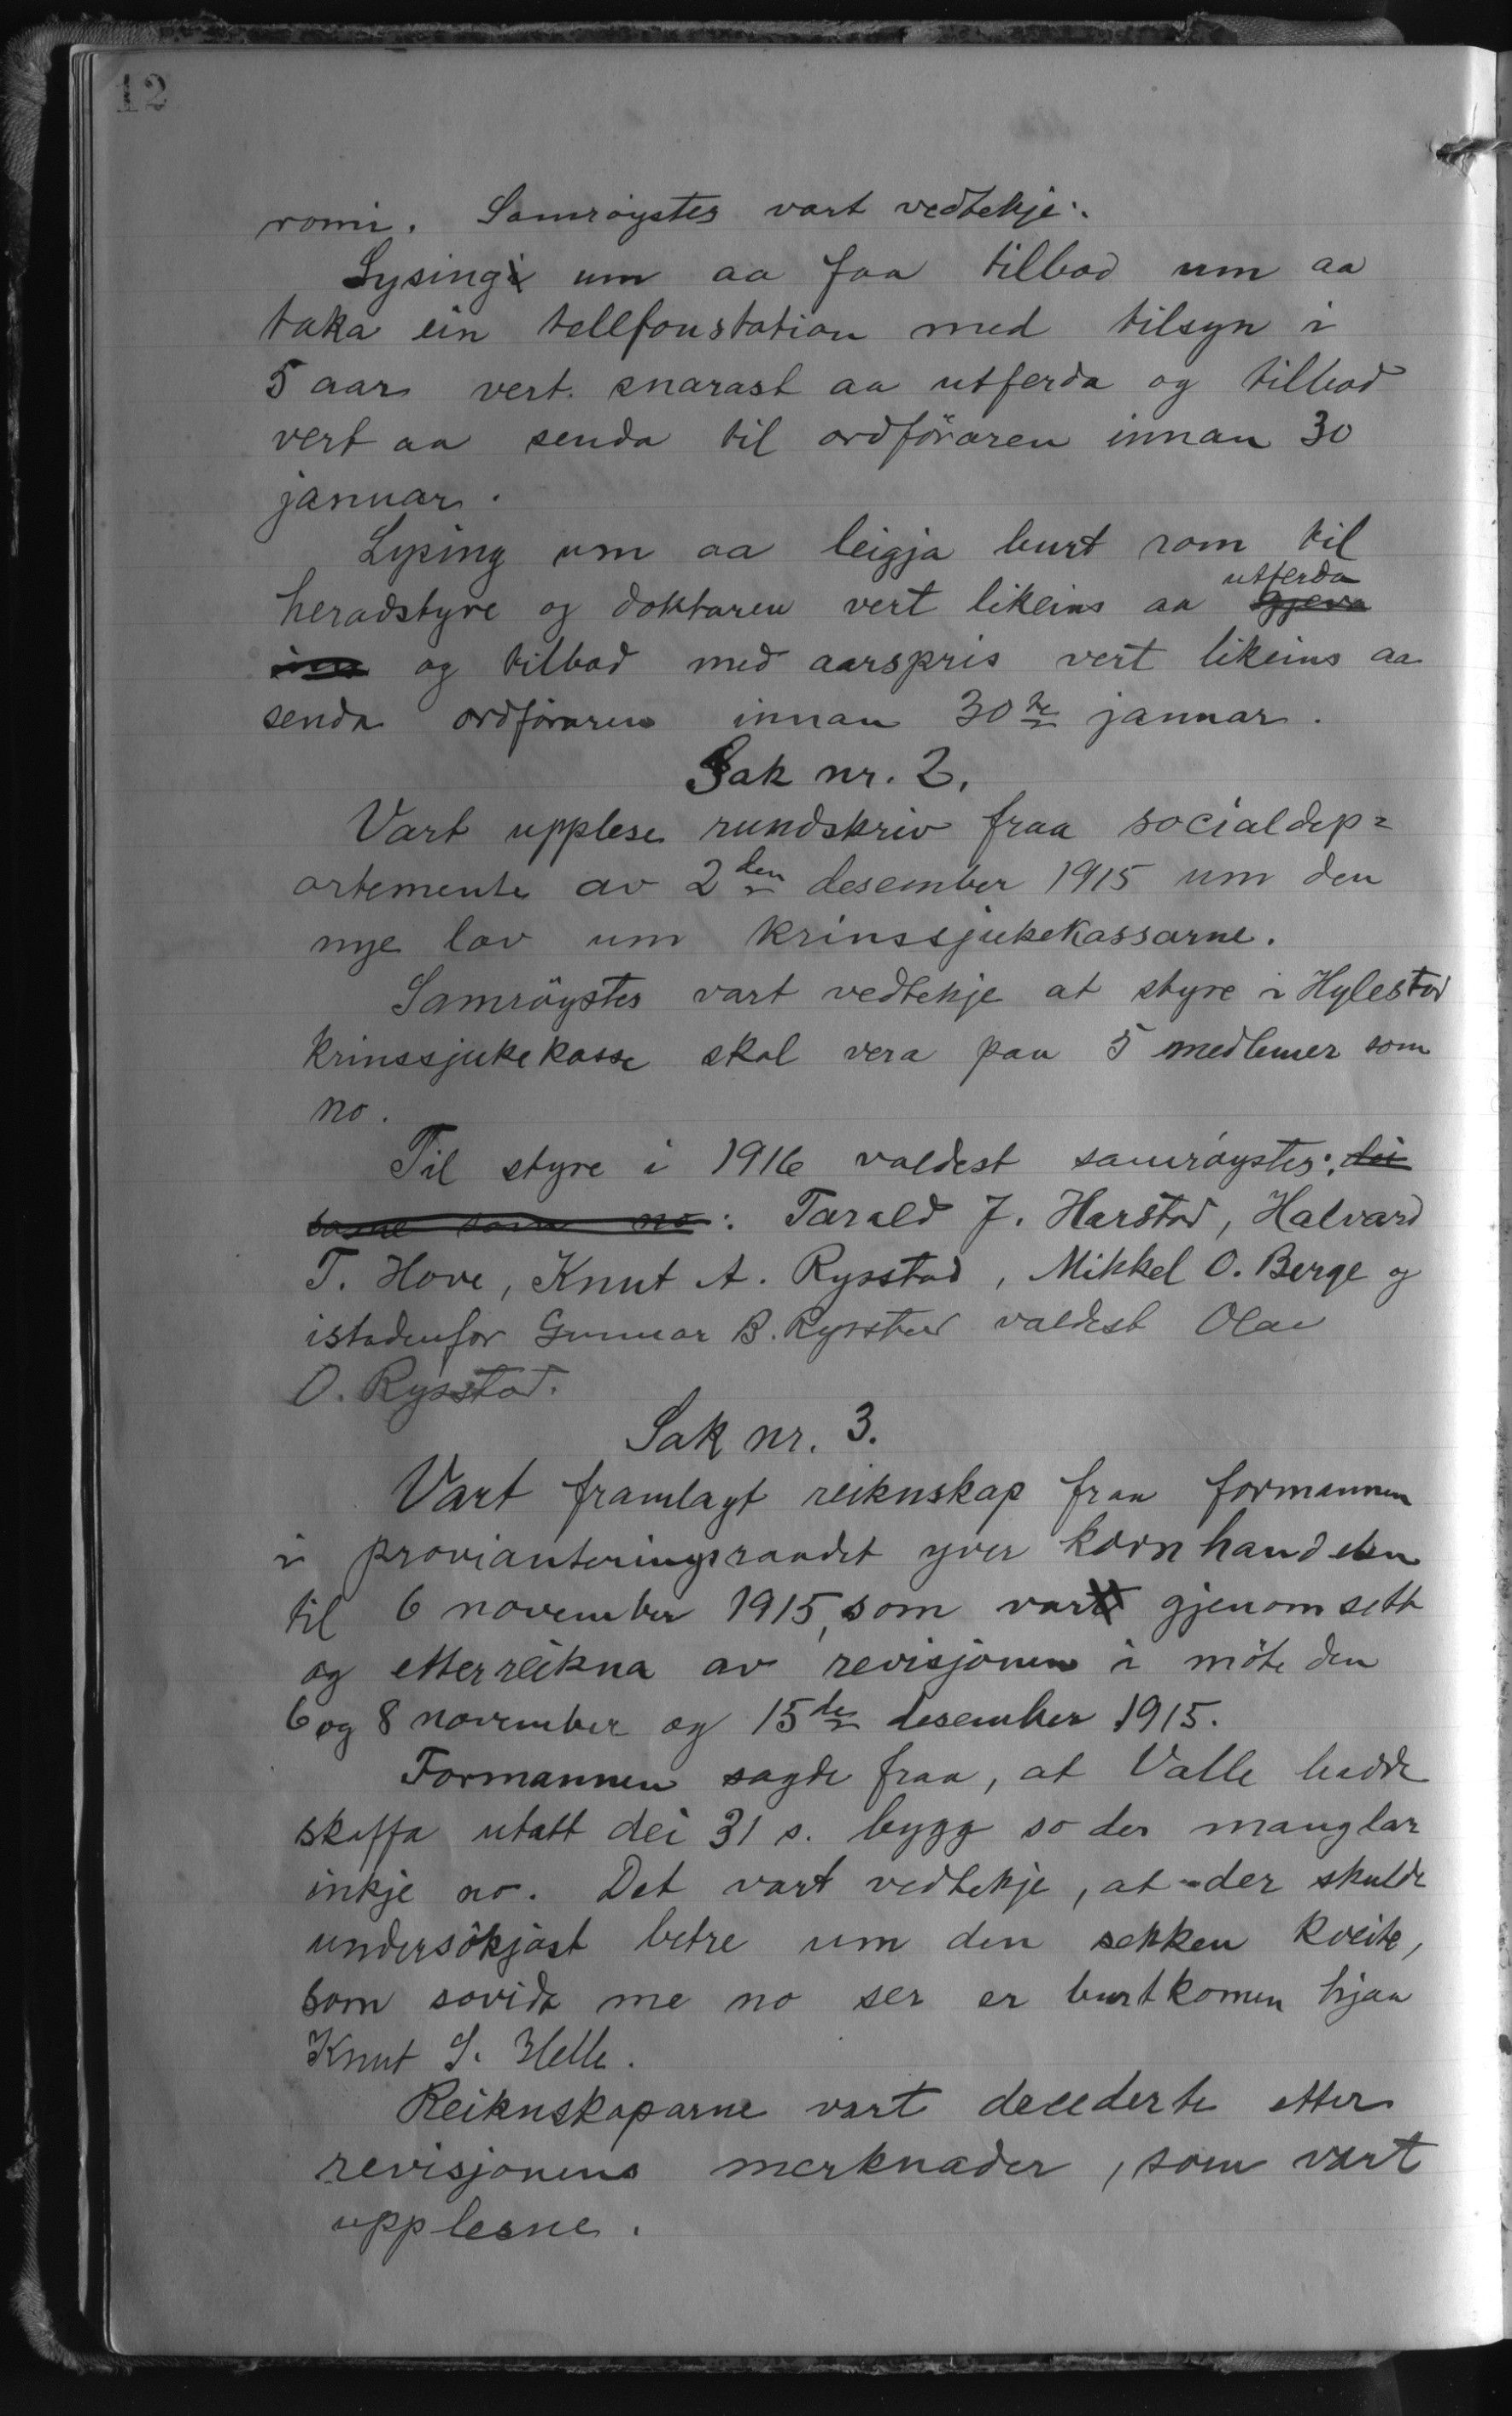 12
romi. Samrøystes vart vedtekje:
Lysing um aa faa tilbod um aa
taka ein tellfonstation med tilsyn i
5 aar vert snarast aa utferda og tilbod
vert aa senda til ordföraren innan 30
januar.
Lysing um aa leigja burt rom til
utferda
heradstyre og doktaren vert likeins aa gjeva
inn og tilbod med aarspris vert likeins aa
senda ordföraren innan 30te januar.
Sak nr. 2.
Vart upplese rundskriv fraa socialdep=
artemente av 2den desember 1915 um den
nye lov um krinssjukekassarne.
Samröystes vart vedtekje at styre i Hylestad
krinssjukekasse skal vera paa 5 medlemer som
no.
Til styre i 1916 valdest samröystes: dei
same som no: Tarald J. Harstad, Halvard
T. Hove, Knut A. Rysstad, Mikkel O. Berge og
istadenfor Gunnar B. Rysstad valdest Olav
O. Rysstad.
Sak nr. 3.
Vart framlagt reiknskap fraa formannen
i provianteringsraadet yver kornhandelen
til 6 november 1915, som vart gjenomsett
og etterreikna av revisjonen i möte den
6 og 8 november og 15de desember 1915.
Formannen sagde fraa, at Valle hadde
skaffa utatt dei 31 s. bygg so der manglar
inkje no. Det vart vedtekje, at der skulde
undersökjast betre um den sekken kveite,
som sovidt me no ser er burtkomen hjaa
Knut S. Helle.
Reiknskaparne vart decederte etter
revisjonens merknader, som vart
upplesne.